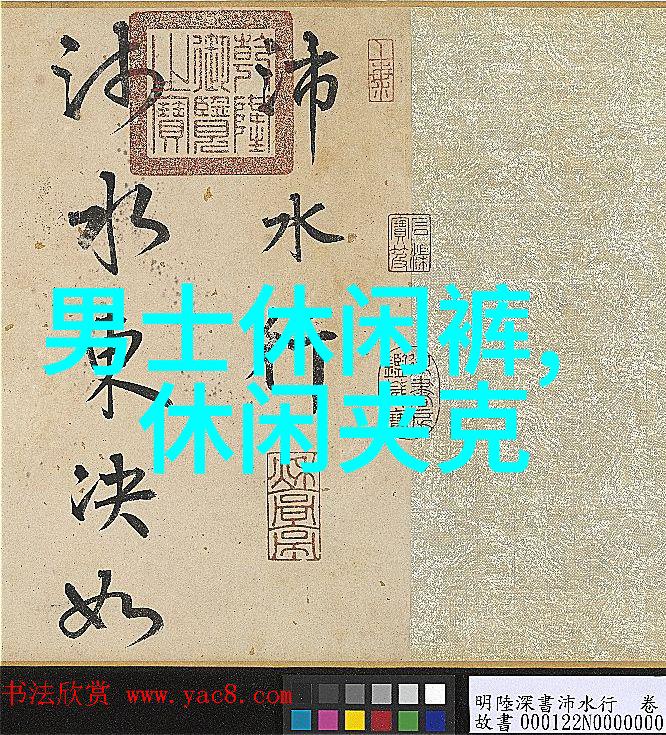 沛水行
沛水東決如
乾隆御覽之寶
男士休闲裤,
休闲夹克
书法欣赏 www.yac8.com
明陸深書沛水行 卷
故書000122N0000000